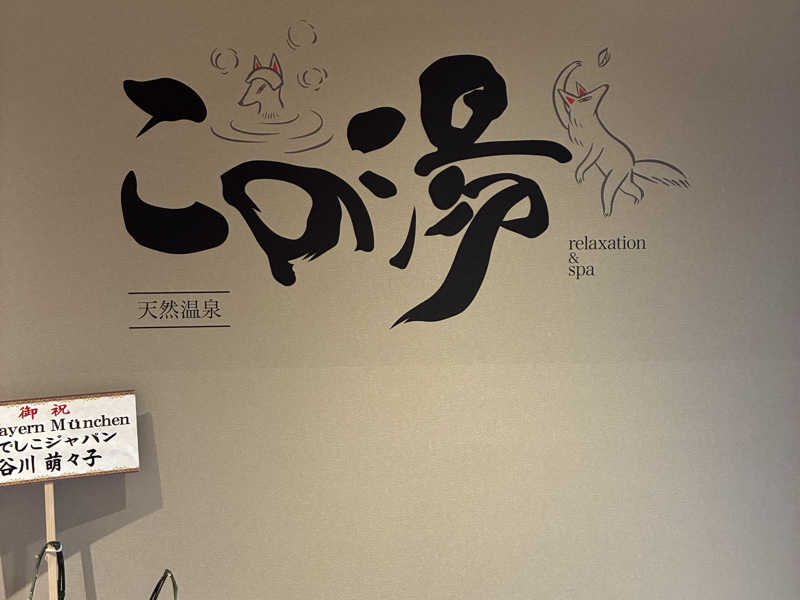 この湯
relaxation
&
spa
天然温泉
御祝
ayern München
でしこジャパン
谷川 萌々子